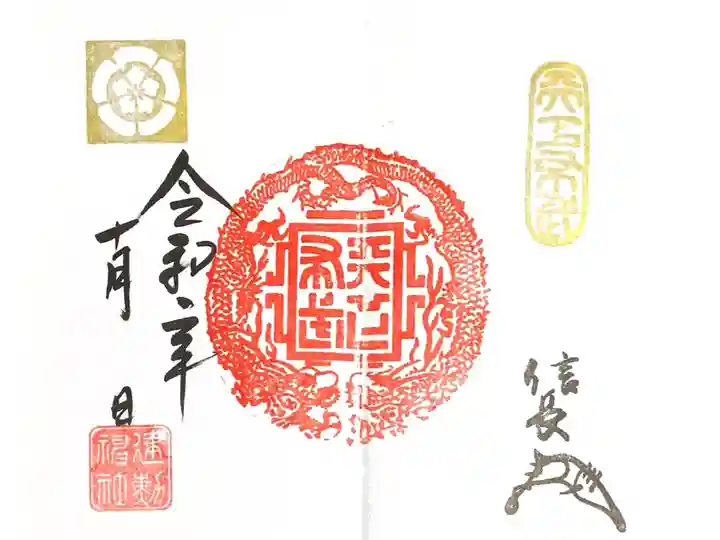 天下布武
信長
天下布武
令和二年
十月 日
建勲神社